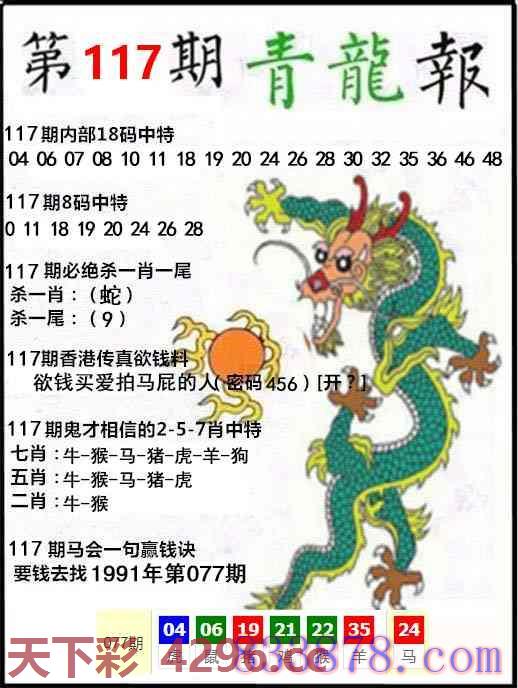 第117期青龍報
117期内部18码中特
04 06 07 08 10 11 18 19 20 24 26 28 30 32 35 36 46 48
117期8码中特
0 11 18 19 20 24 26 28
117期必绝杀一肖一尾
杀一肖：（蛇）
杀一尾：（9）
117期香港传真欲钱料
欲钱买爱拍马屁的人（密码456）[开？]
117期鬼才相信的2-5-7肖中特
七肖：牛-猴-马-猪-虎-羊-狗
五肖：牛-猴-马-猪-虎
二肖：牛-猴
117期马会一句赢钱诀
要钱去找1991年第077期
077期 04 06 19 21 22 35 24
虎 鼠 猪 鸡 猴 羊 马
天下彩 4296.cc